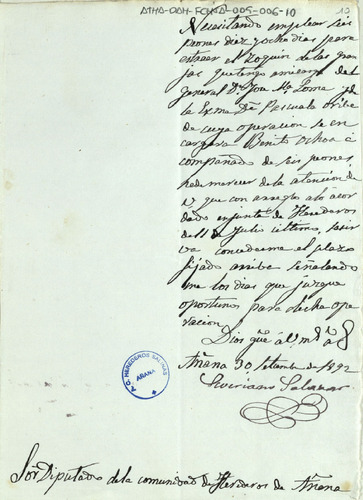 ATHA-DAH-FCHSA-005-006-10
10
Necesitando emplear seis
peones diez y ocho dias para
estraer el Zoquin de las gran
jas que tengo a mi cargo del
general Dn Jose Ma Loma y de
la Exma Da Pascuala Oribe
de cuya operacion se en
cargara Benito Ochoa a
compañado de seis peones,
he de merecer de la atencion de
V que con arreglo al acor
dado en junta de Herederos
de 11 de Julio ultimo, se sir
va concederme el plazo
fijado arriba señalando
me los dias que juzgue
oportunos para dicha ope
racion.
Dios gue a V. ms as
Añana 30 Setembre de 1892
Severiano Salazar
A.C. HEREDEROS SALINAS
AÑANA
Sor Diputado de la comunidad de Herederos de Añana